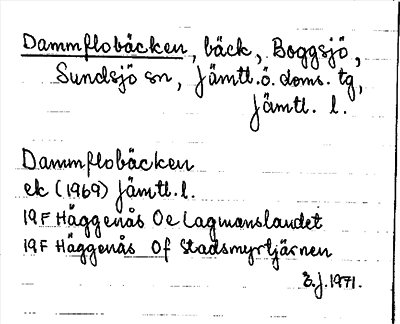 Dammflobäcken, bäck, Boggsjö,
Sundsjö sn, Jämtl. ö. doms. tg,
Jämtl. l.
Dammflobäcken
ek (1969) Jämtl. l.
19F Häggenås Oe Lagmanslandet
19F Häggenås Of Stadsmyrtjärnen
E.J. 1971.